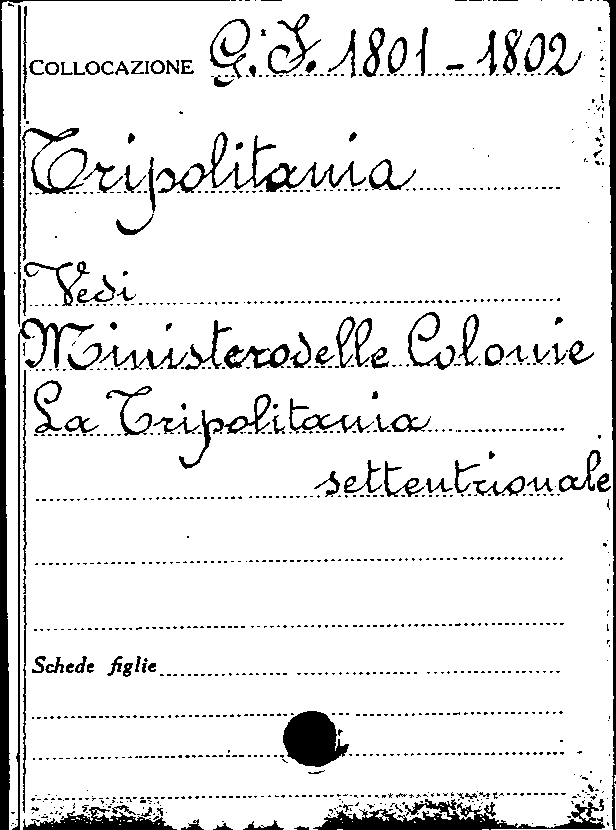 COLLOCAZIONE G. I. 1801 - 1802
Tripolitania
Vedi
Ministero delle Colonie
La Tripolitania
settentrionale
Schede figlie